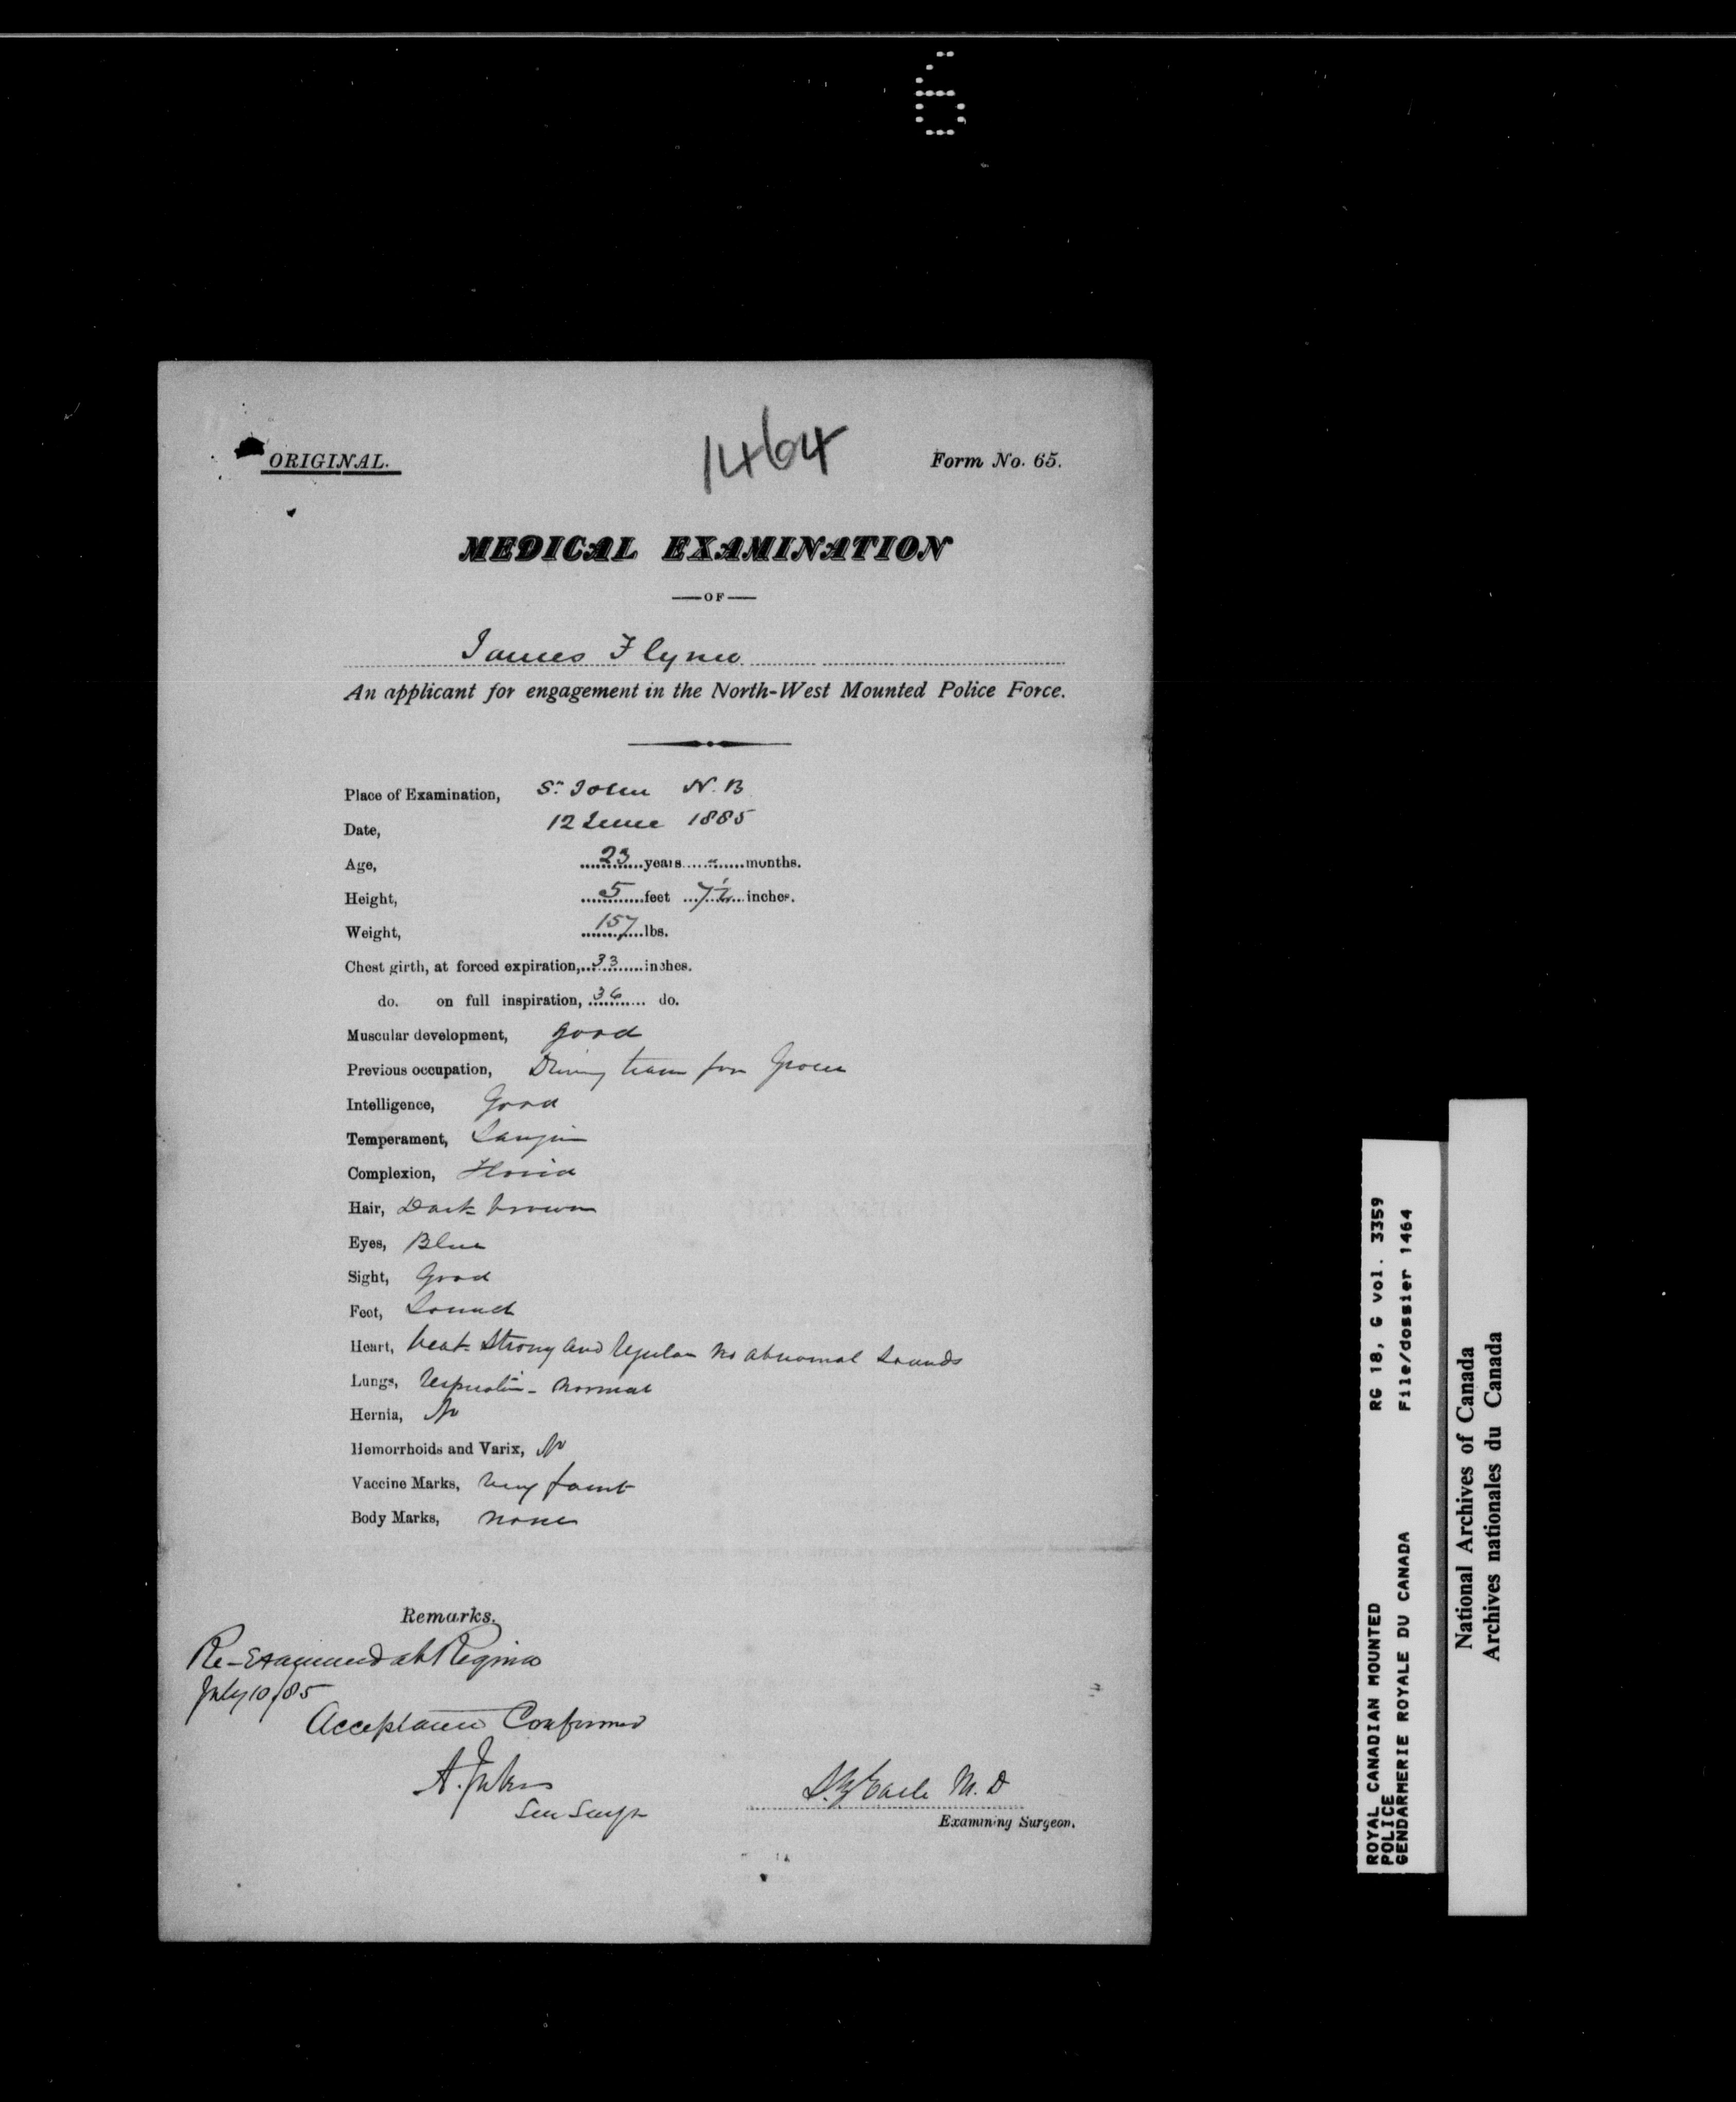 6
ORIGINAL.
1464
Form No. 65.
MEDICAL EXAMINATION
—OF—
James Flynn
An applicant for engagement in the North-West Mounted Police Force.
Place of Examination, St. John N.B
Date, 12 June 1885
Age, 23 years - months.
Height, 5 feet 7½ inches.
Weight, 157 lbs.
Chest girth, at forced expiration, 33 inches.
do. on full inspiration, 36 do.
Muscular development, good
Previous occupation, Driving team for Grocer
Intelligence, Good
Temperament, Sanguin
Complexion, Florid
Hair, Dark brown
Eyes, Blue
Sight, Good
Feet, Sound
Heart, beat strong and regular no abnormal sounds
Lungs, respiration - normal
Hernia, No
Hemorrhoids and Varix, No
Vaccine Marks, very faint
Body Marks, none
Remarks.
Re-Examined at Regina
July 10/85
Acceptance Confirmed
A. Jukes
Sen Surgn
Earle M.D
Examining Surgeon.
ROYAL CANADIAN MOUNTED RG 18, G vol. 3359
POLICE
GENDARMERIE ROYALE DU CANADA File/dossier 1464
National Archives of Canada
Archives nationales du Canada